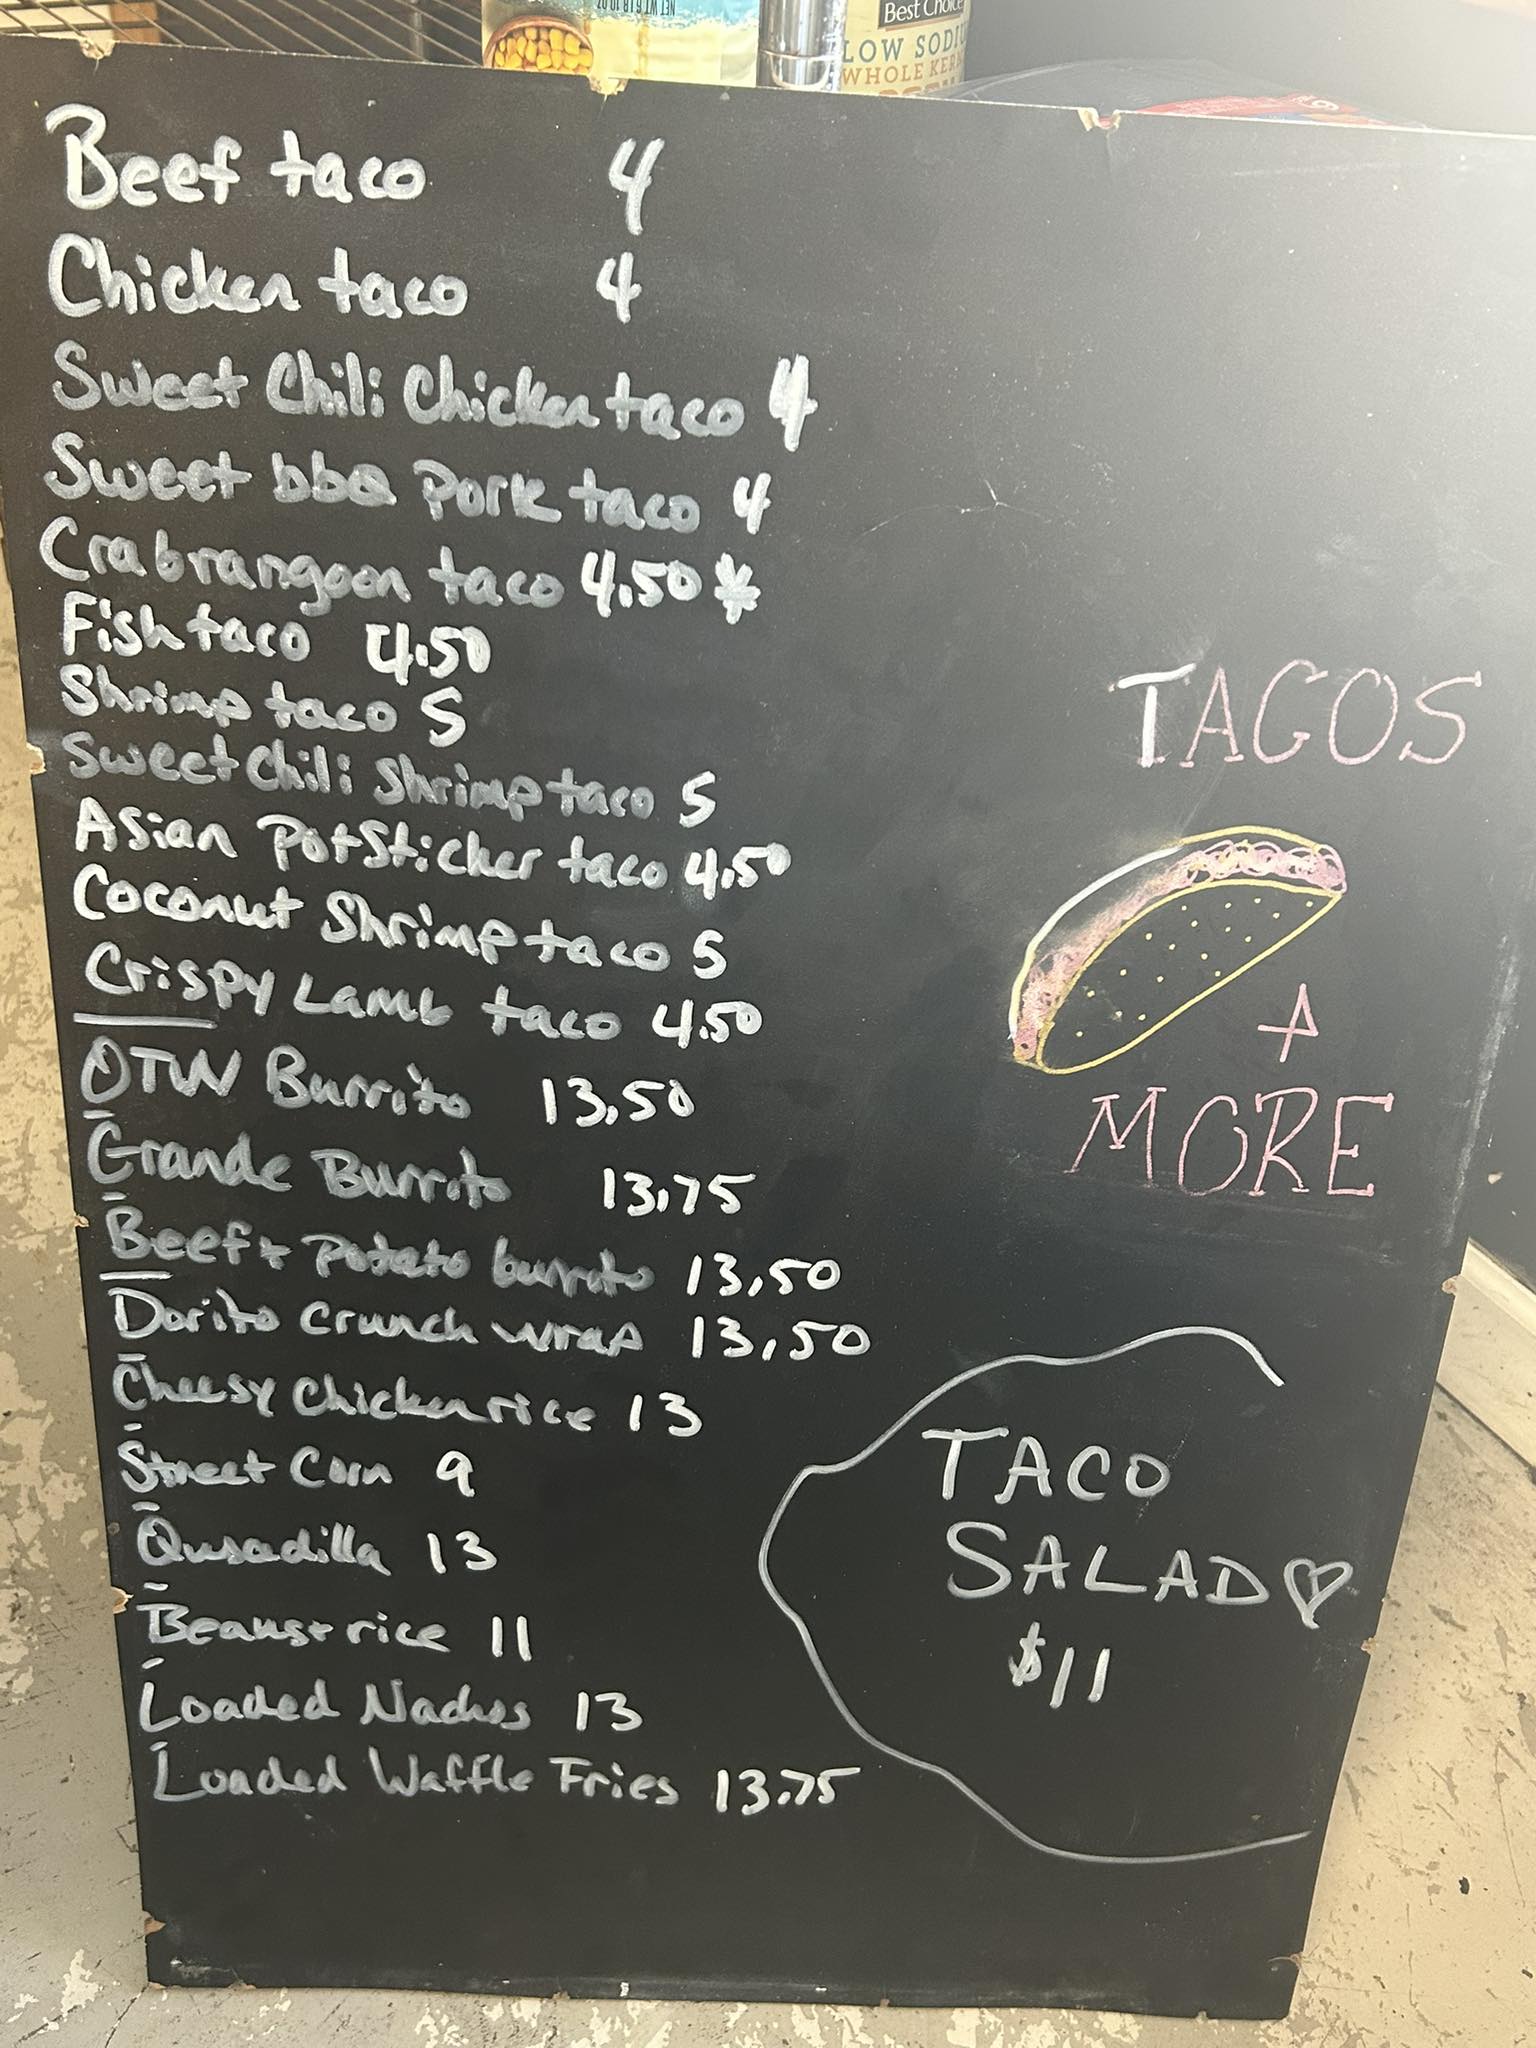 NET WT 6 LB 10 OZ
Best Choice
LOW SODIU
WHOLE KER
Beef taco 4
Chicken taco 4
Sweet Chili Chicken taco 4
Sweet bbq Pork taco 4
Crabrangoon taco 4.50 *
Fish taco 4.50
Shrimp taco 5
Sweet Chili Shrimp taco 5
Asian PotSticker taco 4.50
Coconut Shrimp taco 5
Crispy Lamb taco 4.50
OTW Burrito 13.50
Grande Burrito 13.75
Beef + Potato burrito 13.50
Dorito Crunch wrap 13.50
Cheesy Chicken rice 13
Street Corn 9
Qusadilla 13
Beans + rice 11
Loaded Nachos 13
Loaded Waffle Fries 13.75
TACOS
+
MORE
TACO
SALAD ♡
$11